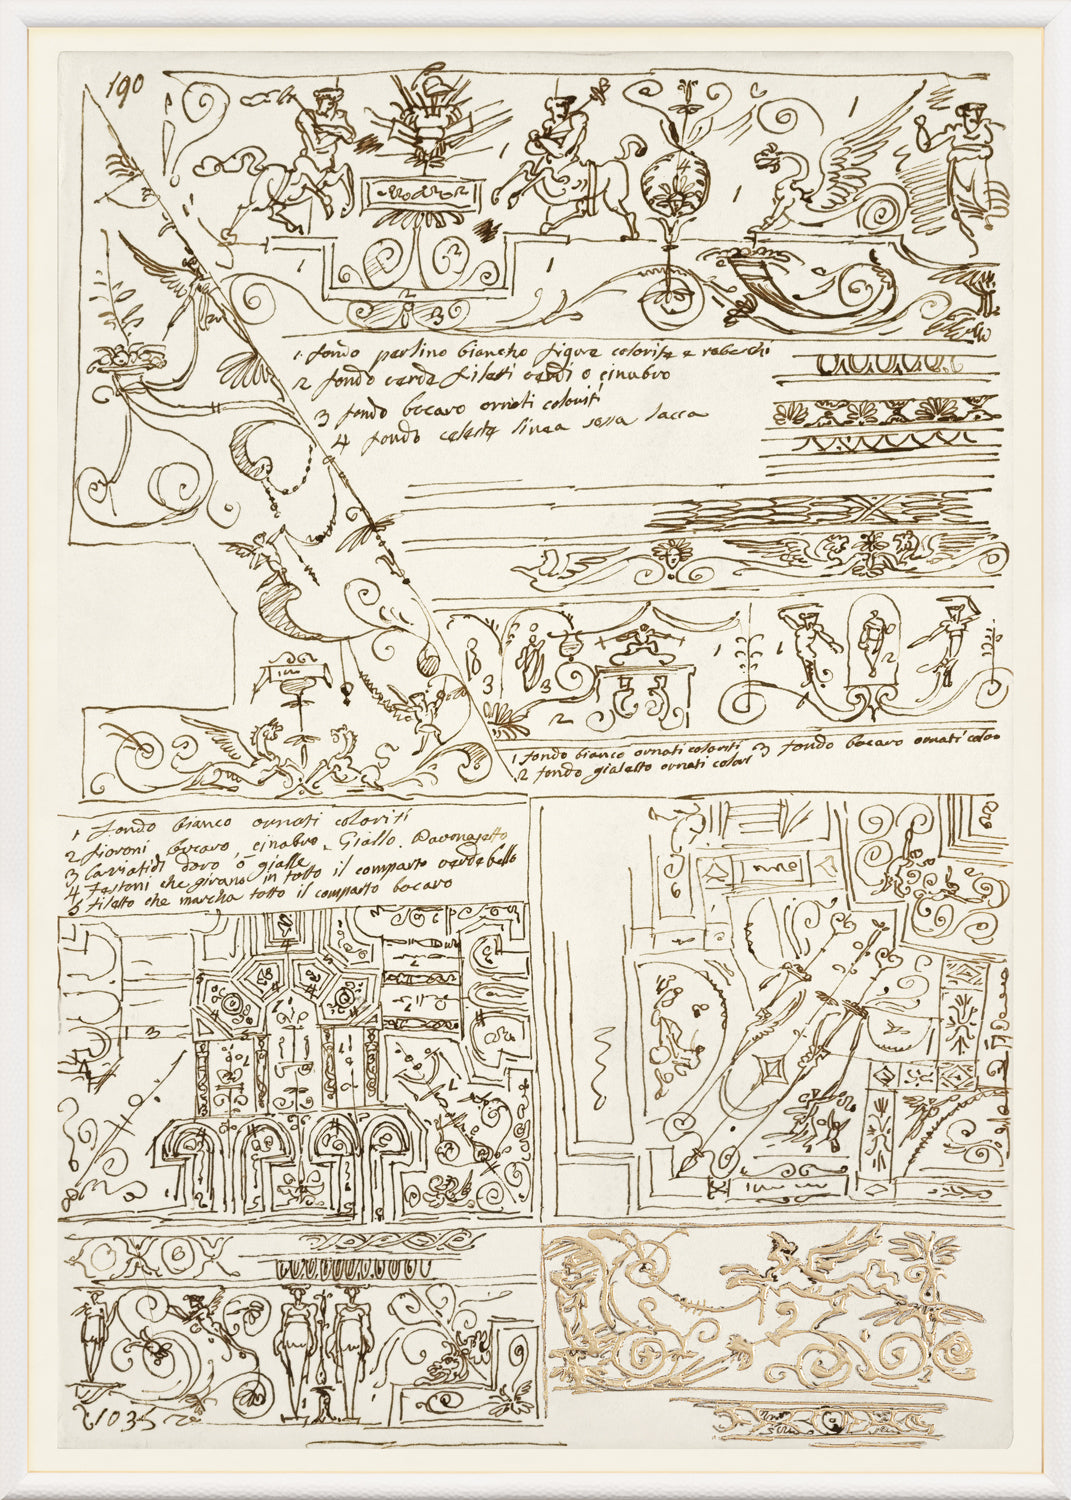 190
1. fondo perlino biancho figure colorite e rabeschi
2 fondo verde filetti verdi o cinabro
3 fondo bocaro ornati coloriti
4 fondo celeste linea rossa lacca
1 fondo bianco ornati coloriti 3 fondo bocaro ornati colo
2 fondo gialetto ornati colori
1 fondo bianco ornati coloriti
2 fioroni bocaro, cinabro, Giallo, Pavonazetto
3 Cariatidi doro o gialle
4 Festoni che girano in totto il comparto verde bello
5 filetto che marcha totto il comparto bocaro
1035